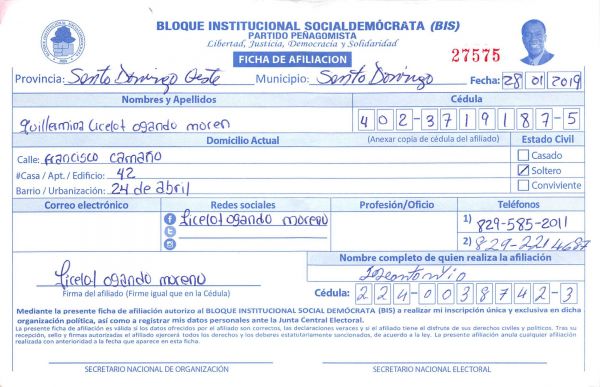 BLOQUE INSTITUCIONAL SOCIALDEMÓCRATA (BIS)
PARTIDO PEÑAGOMISTA
Libertad, Justicia, Democracia y Solidaridad
FICHA DE AFILIACION
27575
Provincia: Santo Domingo Oeste Municipio: Santo Domingo Fecha: 28 01 2019
Nombres y Apellidos Cédula
Guillermina Licelot ogando moren 402-3719187-5
Domicilio Actual (Anexar copia de cédula del afiliado) Estado Civil
Calle: Francisco Camaño Casado
#Casa / Apt. / Edificio: 42 Soltero
Barrio / Urbanización: 24 de abril Conviviente
Correo electrónico Redes sociales Profesión/Oficio Teléfonos
Licelot ogando moreno 1) 829-585-2011
2) 829-221 4687
Nombre completo de quien realiza la afiliación
Licelot ogando moreno
Firma del afiliado (Firme igual que en la Cédula) Cédula: 224-0038742-3
Mediante la presente ficha de afiliación autorizo al BLOQUE INSTITUCIONAL SOCIAL DEMÓCRATA (BIS) a realizar mi inscripción única y exclusiva en dicha
organización política, así como a registrar mis datos personales ante la Junta Central Electoral.
La presente ficha de afiliación es válida si los datos ofrecidos por el afiliado son correctos, las declaraciones veraces y si el afiliado tiene el disfrute de sus derechos civiles y políticos. Tras su
recepción, sello y firmas autorizadas el afiliado ejercerá todos los derechos y los deberes estatutariamente sancionados, de acuerdo a la ley. La presente afiliación anula cualquier afiliación
realizada con anterioridad a la fecha que aparece en esta ficha.
SECRETARIO NACIONAL DE ORGANIZACIÓN SECRETARIO NACIONAL ELECTORAL